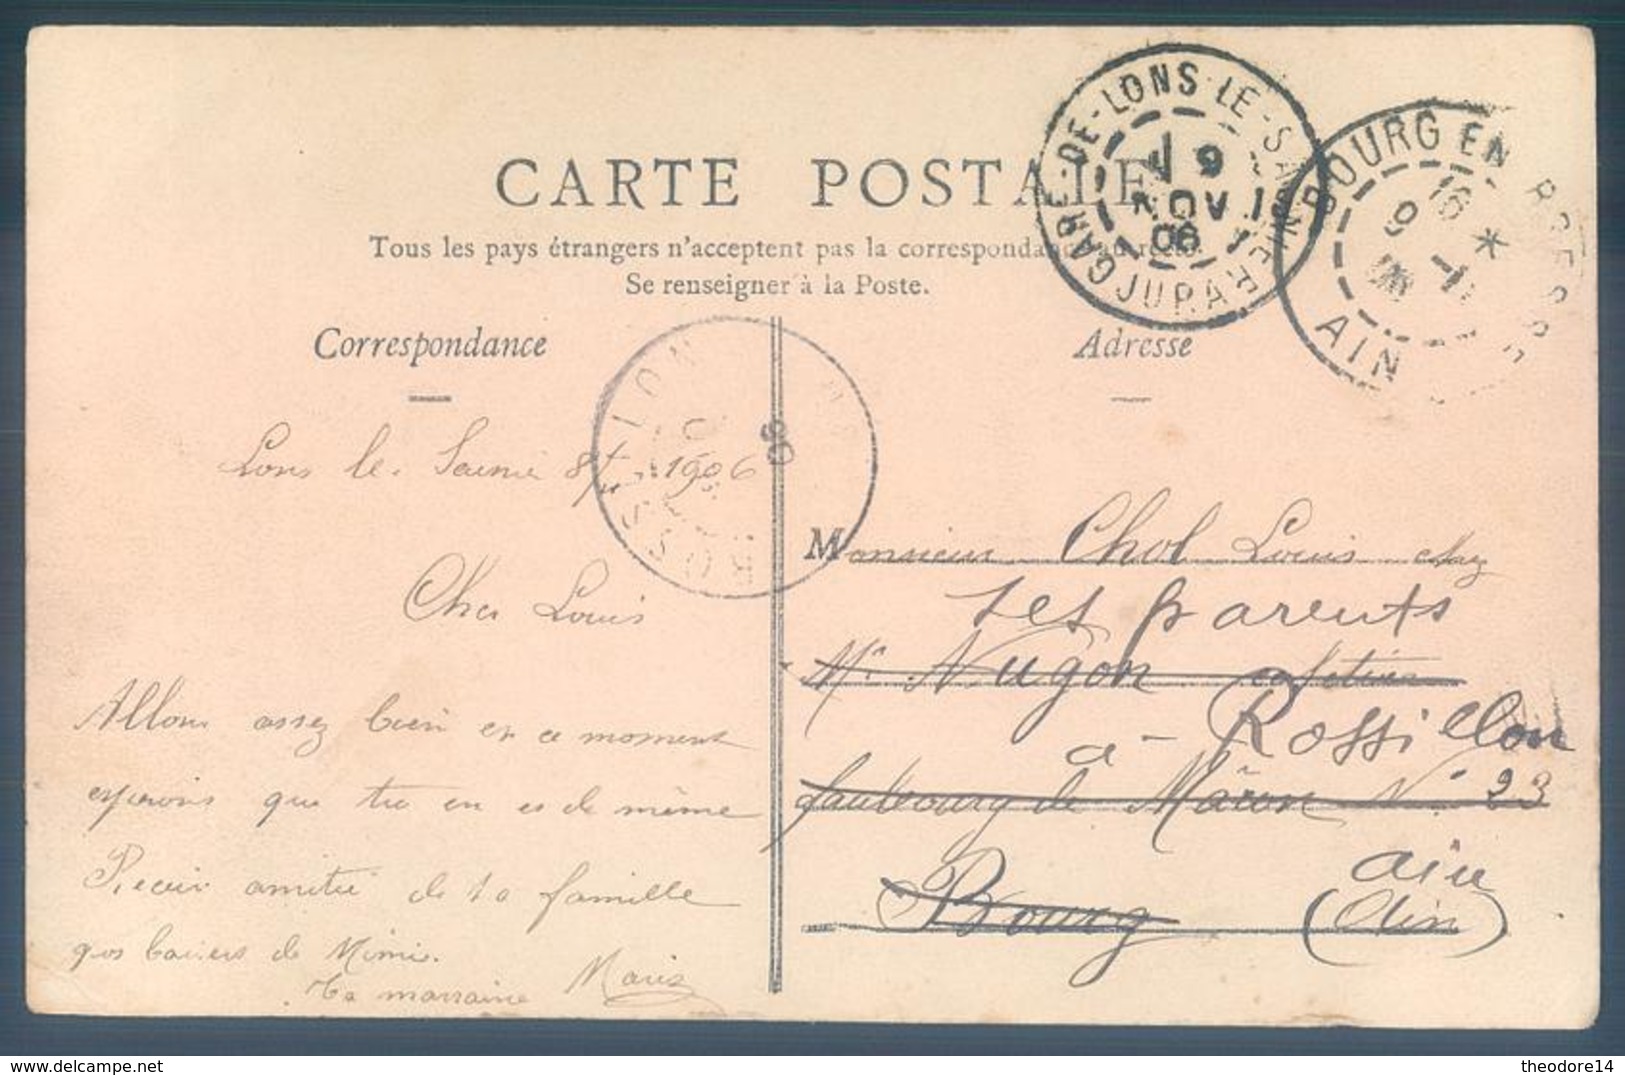 CARTE POSTALE
Tous les pays étrangers n'acceptent pas la correspondance au recto.
Se renseigner à la Poste.
Correspondance
Adresse
GARE-DE-LONS-LE-SAUNIER
9
NOV
06
JURA
BOURG EN BRESSE
16 *
9 -11
06
AIN
ROSSILLON
06
Lons le Saunier 8/11 1906
Cher Louis
Allons assez bien en ce moment
espérons que tu en es de même
Recoir amitié de ta famille
gros baisers de Mimi.
Ta marraine Marie
Monsieur Chol Louis chez
ses parents
Mr Nugon cafetier
à Rossillon
faubourg de Mâcon No 23
ain
Bourg (Ain)
theodore14